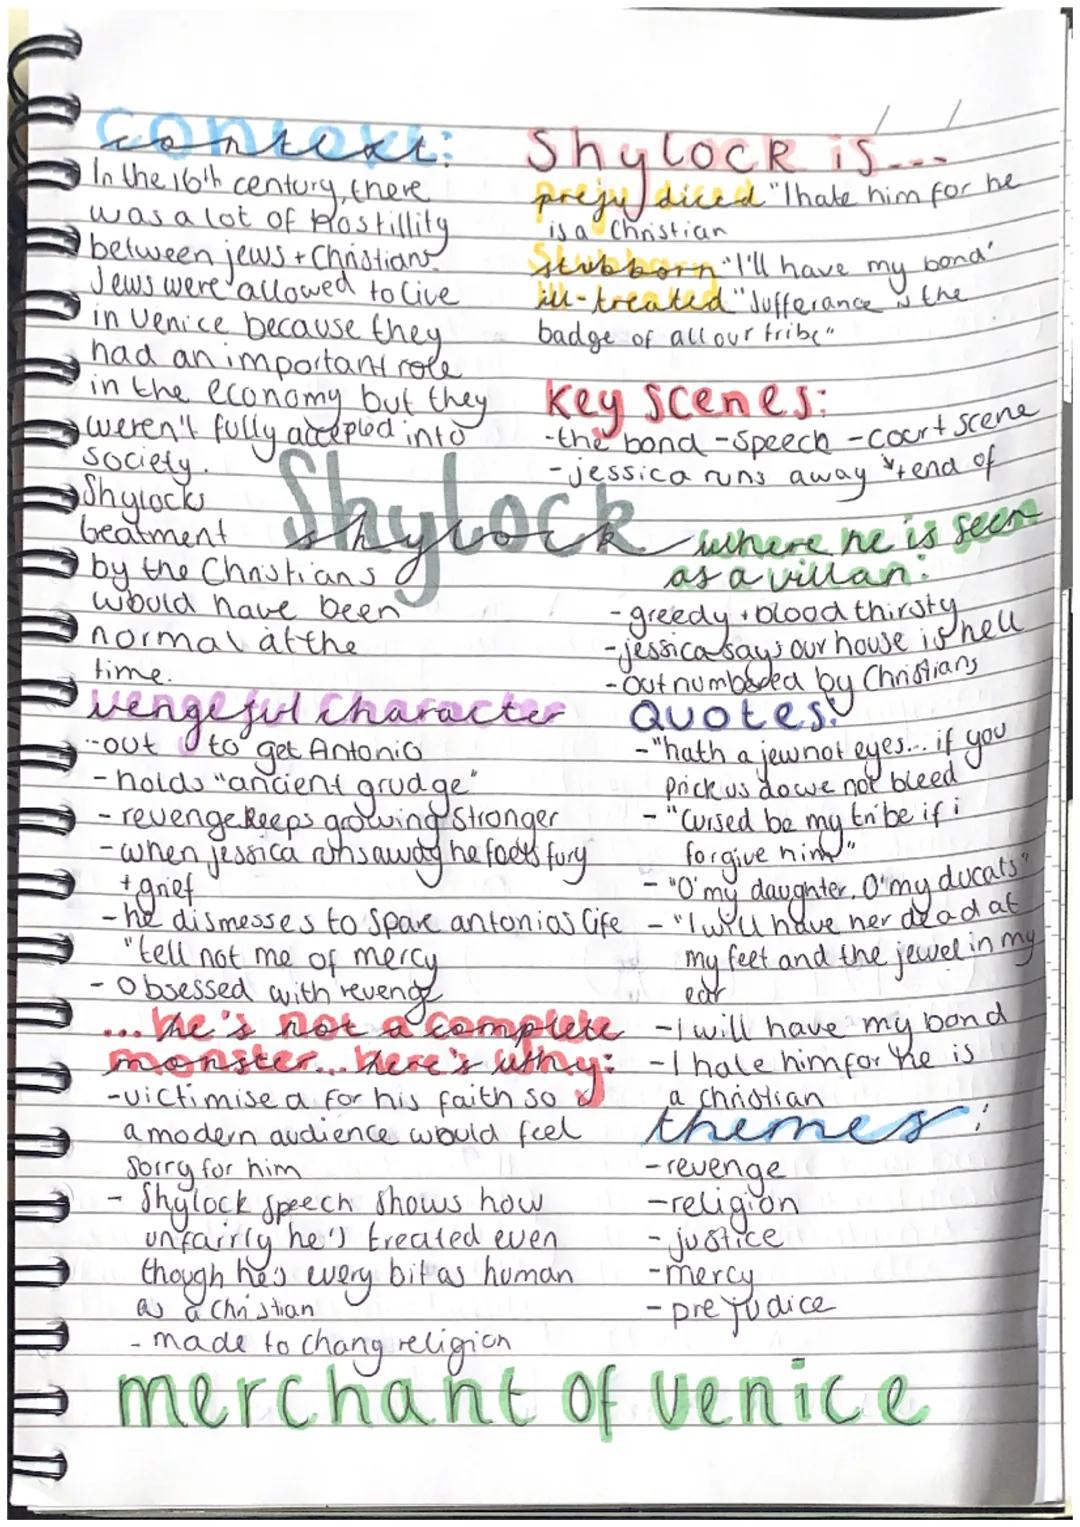 context:
In the 16th century, there
was a lot of hostillity
between jews + Christians.
Jews were allowed to live
in Venice because they
had an important role
in the economy but they
weren't fully accepted into
society.
Shylocks
treatment
by the Christians
would have been
normal at the
time.
Shylock is...
prejudiced "I hate him for he
is a Christian
stubborn "I'll have my bond'
ill-treated "Sufferance is the
badge of all our tribe"
key scenes:
-the bond -speech -court scene
-jessica runs away + end of
Shylock
shylock
where he is seen
as a villan:
-greedy + blood thirsty
-jessica says our house is hell
-outnumbered by Christians
vengeful character
-out to get Antonio
-holds "ancient grudge"
-revenge keeps growing stronger
-when jessica runs away he feels fury
+ grief
-he dismesses to spare antonios life
"tell not me of mercy
-Obsessed with revenge
Quotes:
-"hath a jew not eyes... if you
prick us do we not bleed
-"Cursed be my tribe if i
forgive him"
-"O'my daughter, O'my ducats"
-"I will have her dead at
my feet and the jewel in my
ear
-I will have my bond
-I hate him for he is
a christian
...he's not a complete
monster... here's why:
-victimised for his faith so
a modern audience would feel
sorry for him
- Shylock speech shows how
unfairly he's treated even
though he's every bit as human
as a Christian
- made to chang religion
themes:
-revenge
-religion
-justice
-mercy
-prejudice
merchant of venice